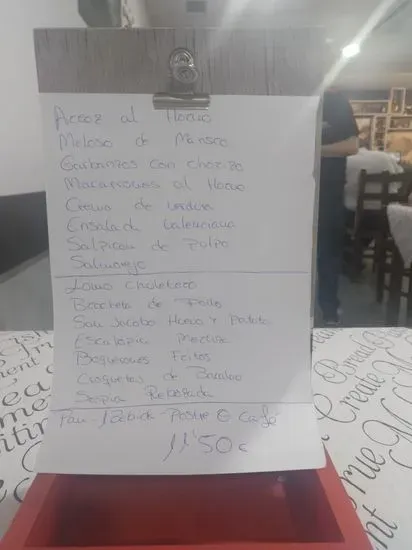 Arroz al Horno
Meloso de Marisco
Garbanzos con chorizo
Macarrones al Horno
Crema de verdura
Ensalada Valenciana
Salpicon de Pulpo
Salmorejo
Lomo
Brocheta de Pollo
San Jacobo Huevo y Patata
Escalopa
Boquerones Fritos
Croquetas de Bacalao
Sepia Rebozada
Pan - 1 Bebida - Postre o Café
11'50€
Create
Bread
True